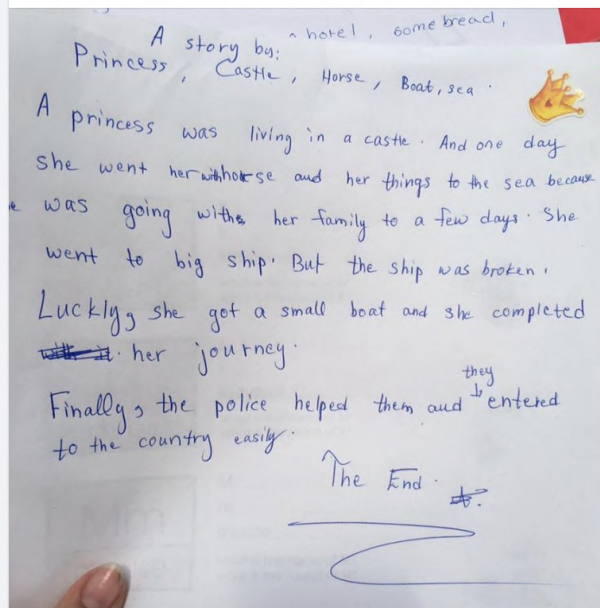 hotel, some bread,
A story by:
Princess, Castle, Horse, Boat, sea.
A princess was living in a castle. And one day
she went her with horse and her things to the sea because
was going with her family to a few days. She
went to big ship. But the ship was broken.
Luckly, she got a small boat and she completed
her journey.
they
Finally, the police helped them and entered
to the country easily.
The End.